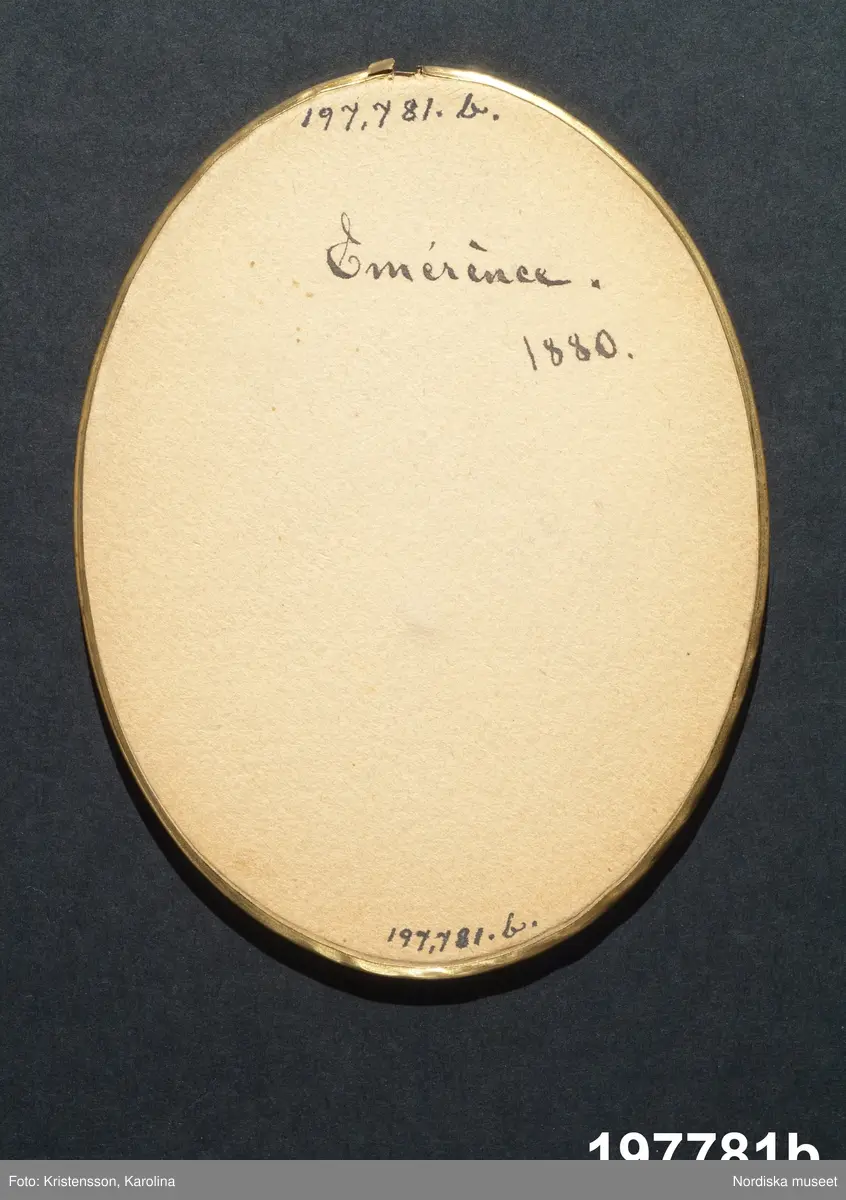 197,781.b.
Émérènce.
1880.
197,781.b.
197781b
Foto: Kristensson, Karolina
Nordiska museet